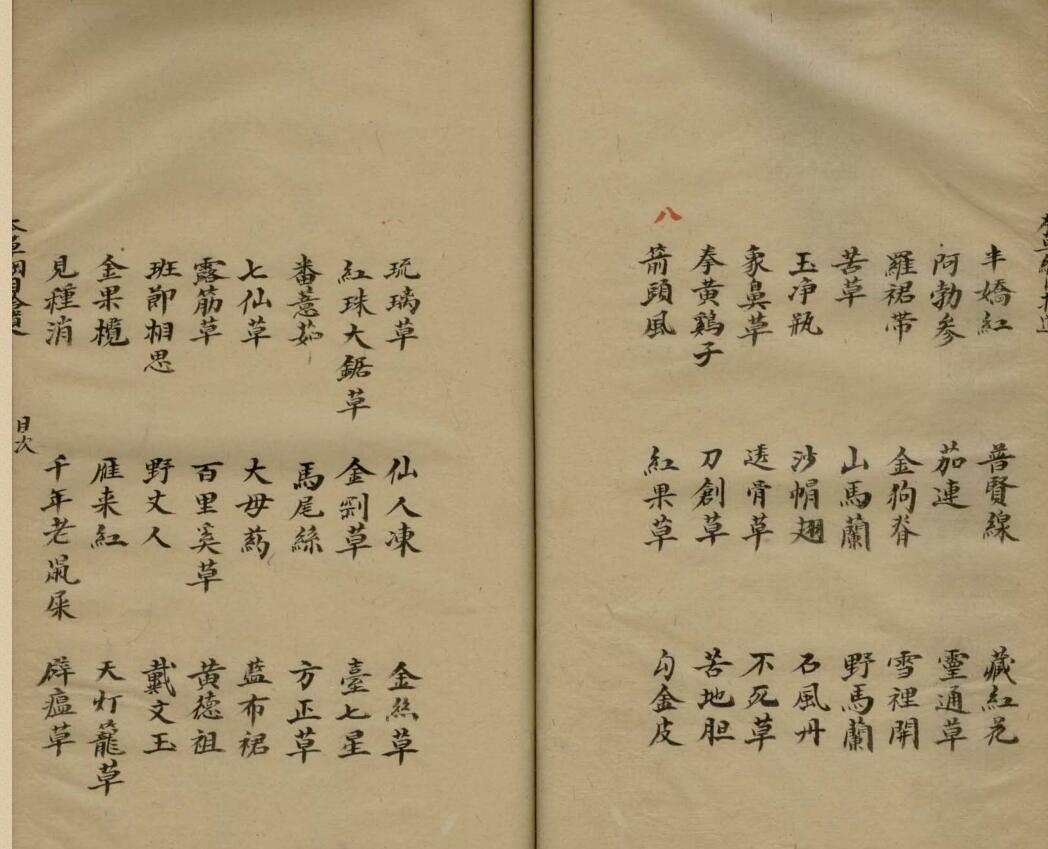 丰嬌紅 普賢線 藏紅花
阿勃參 茄連 靈通草
羅裙帶 金狗脊 雪裡開
苦草 山馬蘭 野馬蘭
玉净瓶 沙帽翅 石風丹
象鼻草 透骨草 不死草
奉黄鷄子 刀創草 苦地胆
八
箭頭風 紅果草 勾金皮
琉璃草 仙人凍 金絲草
紅珠大鋸草 金剛草 臺七星
番薏茹 馬尾絲 方正草
七仙草 大毋葯 藍布裙
露筋草 百里奚草 黄德祖
班節相思 野丈人 戴文玉
金果欖 雁来紅 天灯籠草
見種消 千年老鼠屎 辟瘟草
目次